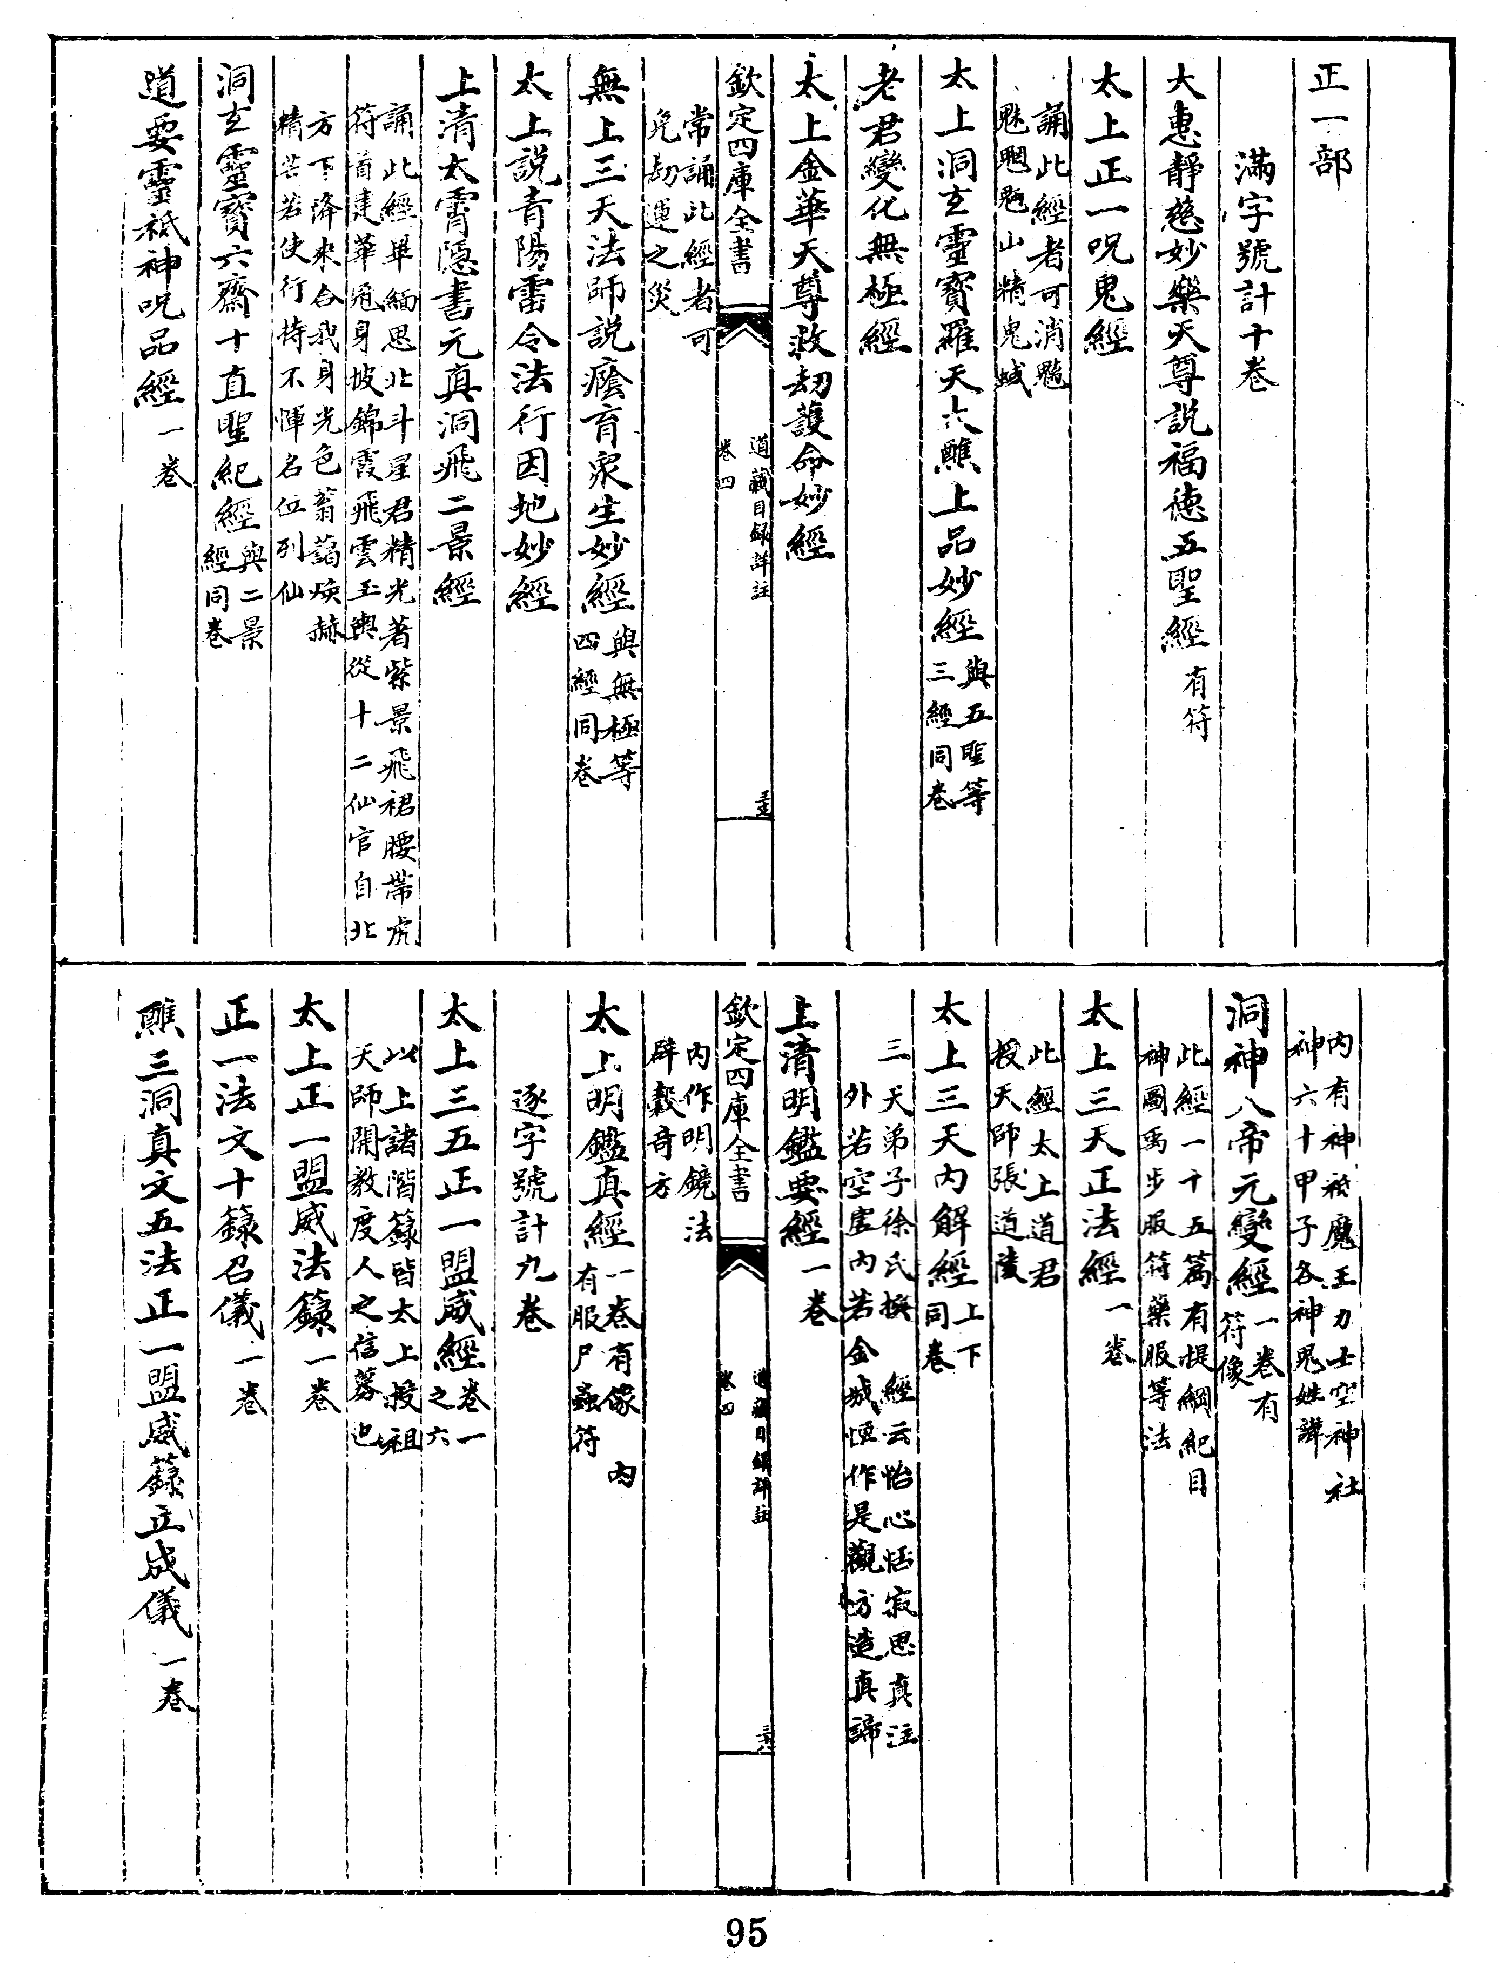 正一部
滿字號計十卷
大惠靜慈妙樂天尊説福德五聖經有符
太上正一呪鬼經
誦此經者可消魑
魅魍魎山精鬼蜮
太上洞玄靈寶羅天大醮上品妙經與五聖等
三經同卷
老君變化無極經
太上金華天尊救劫護命妙經
欽定四庫全書
道藏目録詳註
卷四
常誦此經者可
免劫運之災
無上三天法師説廕育衆生妙經與無極等
四經同卷
太上説青陽雷令法行因地妙經
上清太霄隠書元真洞飛二景經
誦此經畢緬思北斗星君精光著紫景飛裙腰帶虎
符首建華冠身披錦霞飛雲玉輿從十二仙官自北
方下降來合我身光色蓊藹煥赫
精苦若使行持不懈名位列仙
洞玄靈寶六齋十直聖紀經與二景
經同卷
道要靈祇神呪品經一卷
内有神祇魔王力士空神社
神六十甲子各神鬼姓諱
洞神八帝元變經一卷有
符像
此經一十五篇有提綱紀目
神圖禹步服符藥服等法
太上三天正法經一卷
此經太上道君
授天師張道陵
太上三天内解經上下
同卷
三天弟子徐氏撰經云怡心恬寂思真注
外若空虛内若金城恒作是觀方造真諦
上清明鑑要經一卷
欽定四庫全書
道藏目録詳註
卷四
内作明鏡法
辟穀竒方
太上明鑑真經一卷有像内
有服尸蟲符
逐字號計九卷
太上三五正一盟威經卷一
之六
以上諸階籙皆太上授祖
天師開教度人之信券也
太上正一盟威法籙一卷
正一法文十籙召儀一卷
醮三洞真文五法正一盟威籙立成儀一卷
95